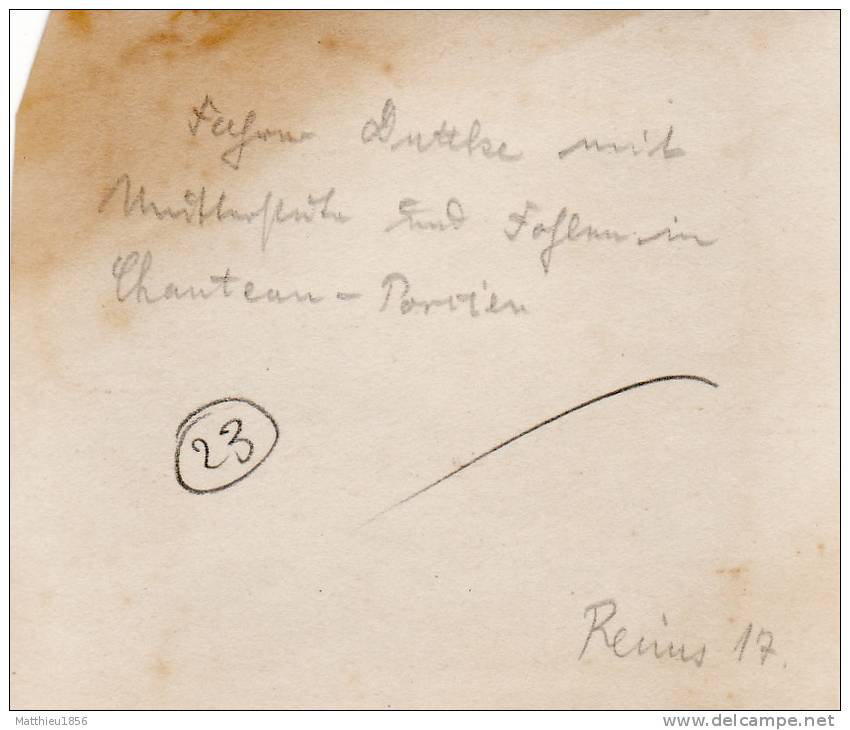 Fahrer Duttke mit
Mutterstute und Fohlen in
Chauteau-Porcien
23
Reims 17.
Matthieu1856
www.delcampe.net